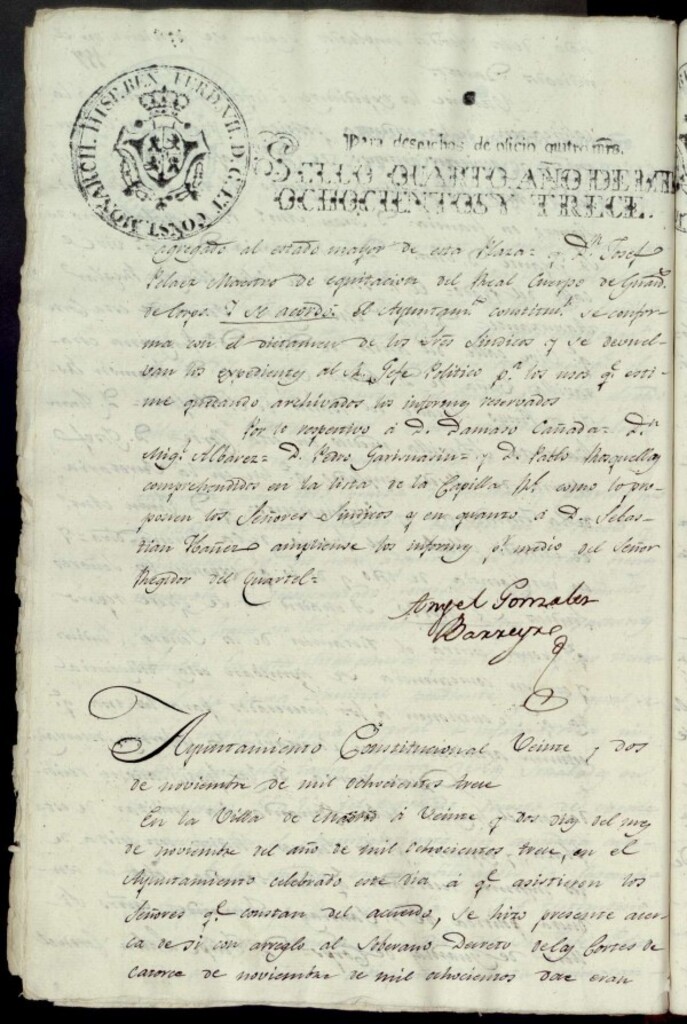 FERD. VII. D. G. ET CONST. MONARCH. HISP. BEN
Para despachos de oficio quatro mrs.
SELLO QUARTO AÑO DE MIL
OCHOCIENTOS Y TRECE.
agregado al estado mayor de esta Plaza= y Dn. Josef
Pelaez Maestro de equitacion del Real Cuerpo de Guards.
de Corps. Y se acordó: el Ayuntamto. constitul. se confor-
ma con el dictamen de los Sres Sindicos y se devuel-
van los expedientes al Sr. Gefe Politico pa. los usos qe. esti-
me quedando archivados los informes reservados
Por lo respectivo á D. Damaso Cañada= Dn.
Migl. Albarez= D. Pedro y D. Pablo
comprehendidos en la lista de la Capilla Rl. como lo pro-
ponen los Señores Sindicos y en quanto á D. Sebas-
tian Ibañez ampliense los informes pr. medio del Señor
Regidor del Quartel=
Angel Gonzalez
Barreyro
Ayuntamiento Constitucional Veinte y dos
de noviembre de mil ochocientos trece
En la Villa de Madrid á Veinte y dos dias del mes
de noviembre del año de mil ochocientos trece, en el
Ayuntamiento celebrado este dia á qe. asistieron los
Señores qe. constan del acuerdo, se hizo presente acer-
ca de si con arreglo al Soberano Decreto de las Cortes de
catorce de noviembre de mil ochocientos doce eran